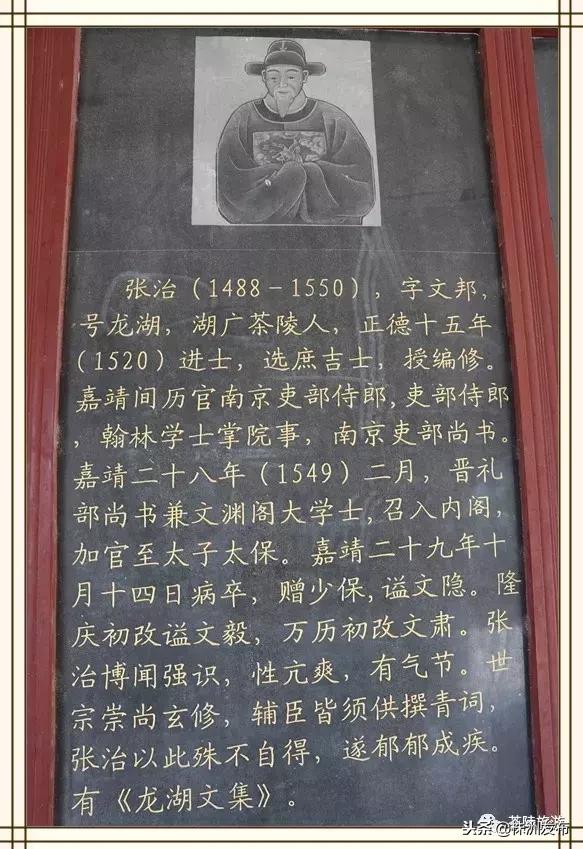 张治（1488－1550），字文邦，
号龙湖，湖广茶陵人，正德十五年
（1520）进士，选庶吉士，授编修。
嘉靖间历官南京吏部侍郎,吏部侍郎
，翰林学士掌院事，南京吏部尚书。
嘉靖二十八年（1549）二月，晋礼
部尚书兼文渊阁大学士,召入内阁，
加官至太子太保。嘉靖二十九年十
月十四日病卒，赠少保,谥文隐。隆
庆初改谥文毅，万历初改文肃。张
治博闻强识，性亢爽，有气节。世
宗崇尚玄修，辅臣皆须供撰青词，
张治以此殊不自得，遂郁郁成疾。
有《龙湖文集》。
茶陵旅游
头条@株洲发布